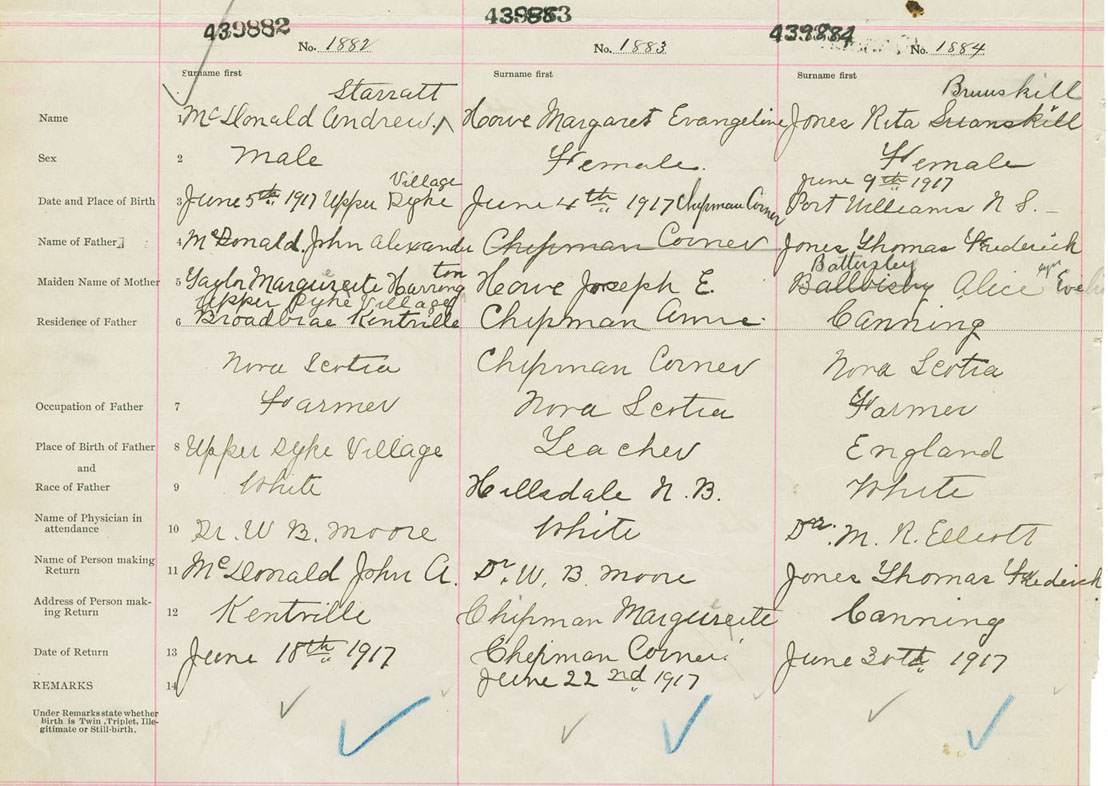 439882 439883 439884
No. 1882 No. 1883 No. 1884
Surname first Surname first Surname first
Starratt Brunskill
Name 1 McDonald Andrew ^ Howe Margaret Evangeline Jones Rita
Sex 2 Male Female Female
Village June 9th 1917
Date and Place of Birth 3 June 5th 1917 Upper Dyke June 4th 1917 Chipman Corner Port Williams N S.
Name of Father 4 McDonald John Alexander Chipman Corner Jones Thomas Frederick
ton Battersley
Maiden Name of Mother 5 Taylor Marguerite Harring Howe Joseph E. Alice
Upper Dyke Village
Residence of Father 6 Broadbrae Kentville Chipman Annie Canning
Nova Scotia Chipman Corner Nova Scotia
Occupation of Father 7 Farmer Nova Scotia Farmer
Place of Birth of Father 8 Upper Dyke Village Teacher England
and
Race of Father 9 White Hillsdale N.B. White
Name of Physician in
attendance 10 Dr. W B. Moore White Dr. M. R. Elliott
Name of Person making
Return 11 McDonald John A. Dr. W. B. Moore Jones Thomas Frederick
Address of Person mak-
ing Return 12 Kentville Chipman Marguerite Canning
Date of Return 13 June 18th 1917 Chipman Corner June 30th 1917
REMARKS 14 June 22nd 1917
Under Remarks state whether
Birth is Twin, Triplet, Ille-
gitimate or Still-birth.